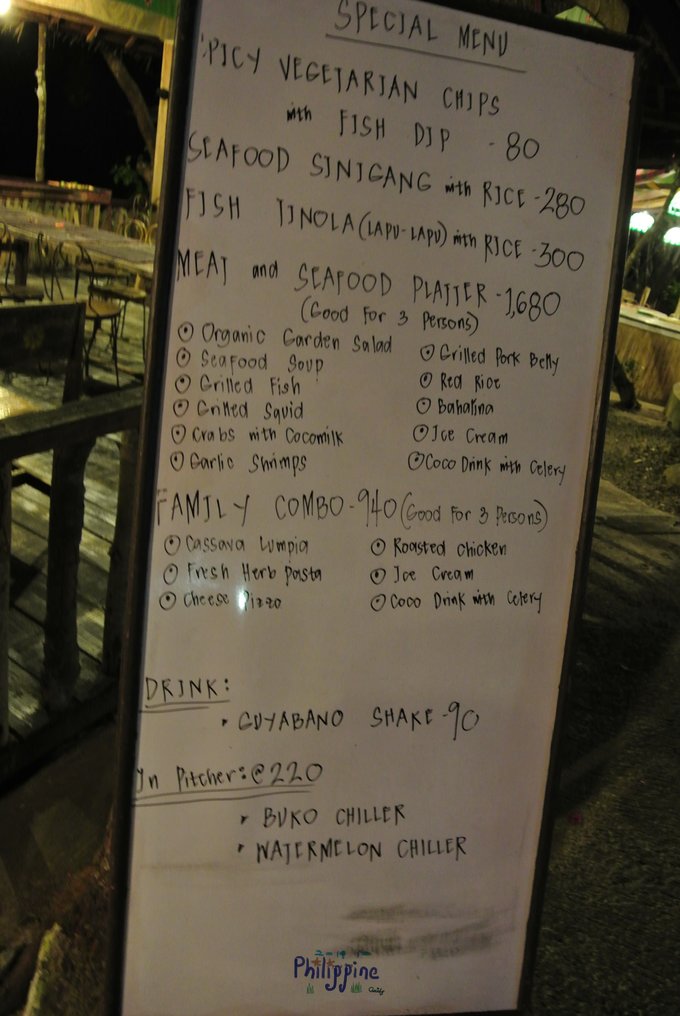 SPECIAL MENU
SPICY VEGETARIAN CHIPS
with FISH DIP - 80
SEAFOOD SINIGANG with RICE - 280
FISH TINOLA (LAPU-LAPU) with RICE - 300
MEAT and SEAFOOD PLATTER - 1,680
(Good For 3 Persons)
Organic Garden Salad
Seafood Soup
Grilled Fish
Grilled Squid
Crabs with Cocomilk
Garlic Shrimps
Grilled Pork Belly
Red Rice
Bahalina
Ice Cream
Coco Drink with Celery
FAMILY COMBO - 940 (Good For 3 Persons)
Cassava Lumpia
Fresh Herb Pasta
Cheese Pizza
Roasted chicken
Ice Cream
Coco Drink with Celery
DRINK:
GUYABANO SHAKE - 90
In Pitcher: @ 220
BUKO CHILLER
WATERMELON CHILLER
Philippine